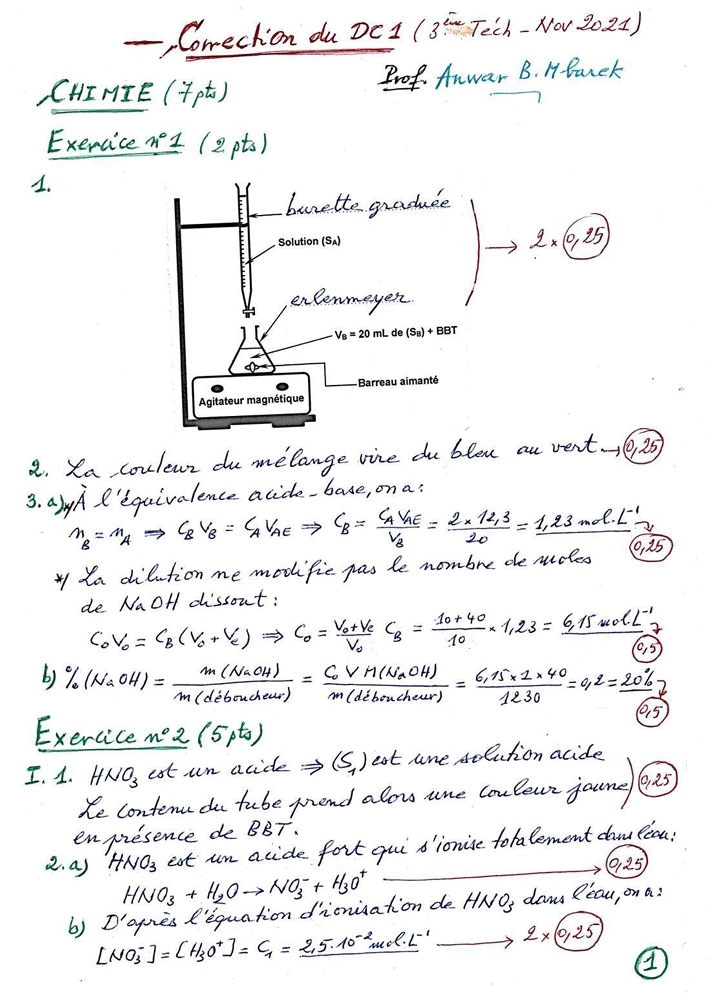 Correction du DC1 (3ème Téch - Nov 2021)
Prof. Anwar B. Mbarek
CHIMIE (7pts)
Exercice n°1 (2 pts)
1.
burette graduée
Solution (SA)
→ 2 × 0,25
erlenmeyer
VB = 20 mL de (SB) + BBT
Barreau aimanté
Agitateur magnétique
2. La couleur du mélange vire du bleu au vert. → 0,25
3. a) */ À l'équivalence acide-base, on a :
nB = nA ⟹ CB VB = CA VAE ⟹ CB = CA VAE / VB = 2 × 12,3 / 20 = 1,23 mol.L⁻¹ → 0,25
*/ La dilution ne modifie pas le nombre de moles
de NaOH dissout :
C0V0 = CB (V0 + Ve) ⟹ C0 = V0+Ve / V0 CB = 10+40 / 10 × 1,23 = 6,15 mol.L⁻¹ → 0,5
b) % (NaOH) = m (NaOH) / m (déboucheur) = C0 V M(NaOH) / m (déboucheur) = 6,15 × 1 × 40 / 1230 = 0,2 = 20% → 0,5
Exercice n°2 (5pts)
I. 1. HNO3 est un acide ⇒ (S1) est une solution acide
Le contenu du tube prend alors une couleur jaune 0,25
en présence de BBT.
2. a) HNO3 est un acide fort qui s'ionise totalement dans l'eau :
HNO3 + H2O → NO3⁻ + H3O⁺ → 0,25
b) D'après l'équation d'ionisation de HNO3 dans l'eau, on a :
[NO3⁻] = [H3O⁺] = C1 = 2,5.10⁻² mol.L⁻¹ → 2 × 0,25
1